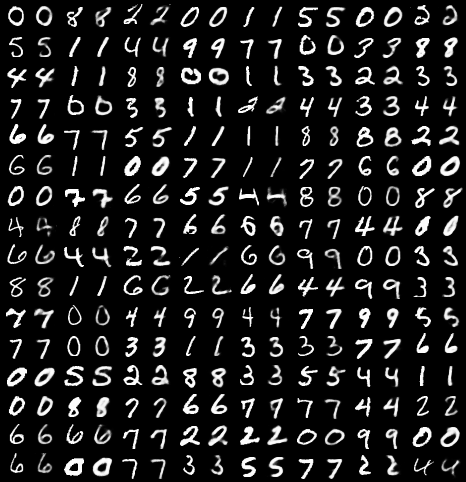 0 0 8 8 2 2 0 0 1 1 5 5 0 0 2 2
5 5 1 1 4 4 9 9 7 7 0 0 3 3 8 8
4 4 1 1 8 8 0 0 1 1 3 3 2 2 3 3
7 7 0 0 3 3 1 1 2 2 4 4 3 3 4 4
6 6 7 7 5 5 1 1 1 1 8 8 8 8 2 2
6 6 1 1 0 0 7 7 1 1 7 7 6 6 0 0
0 0 7 7 6 6 5 5 4 4 8 8 0 0 8 8
4 4 8 8 7 7 6 6 6 6 7 7 4 4 0 0
6 6 4 4 2 2 1 1 6 6 9 9 0 0 3 3
8 8 1 1 6 6 2 2 6 6 4 4 9 9 3 3
7 7 0 0 4 4 9 9 4 4 7 7 9 9 5 5
7 7 0 0 3 3 1 1 3 3 3 3 7 7 6 6
0 0 5 5 2 2 8 8 3 3 5 5 4 4 1 1
0 0 8 8 7 7 6 6 7 7 7 7 4 4 2 2
6 6 6 6 7 7 2 2 2 2 0 0 9 9 0 0
6 6 0 0 7 7 3 3 5 5 7 7 2 2 4 4